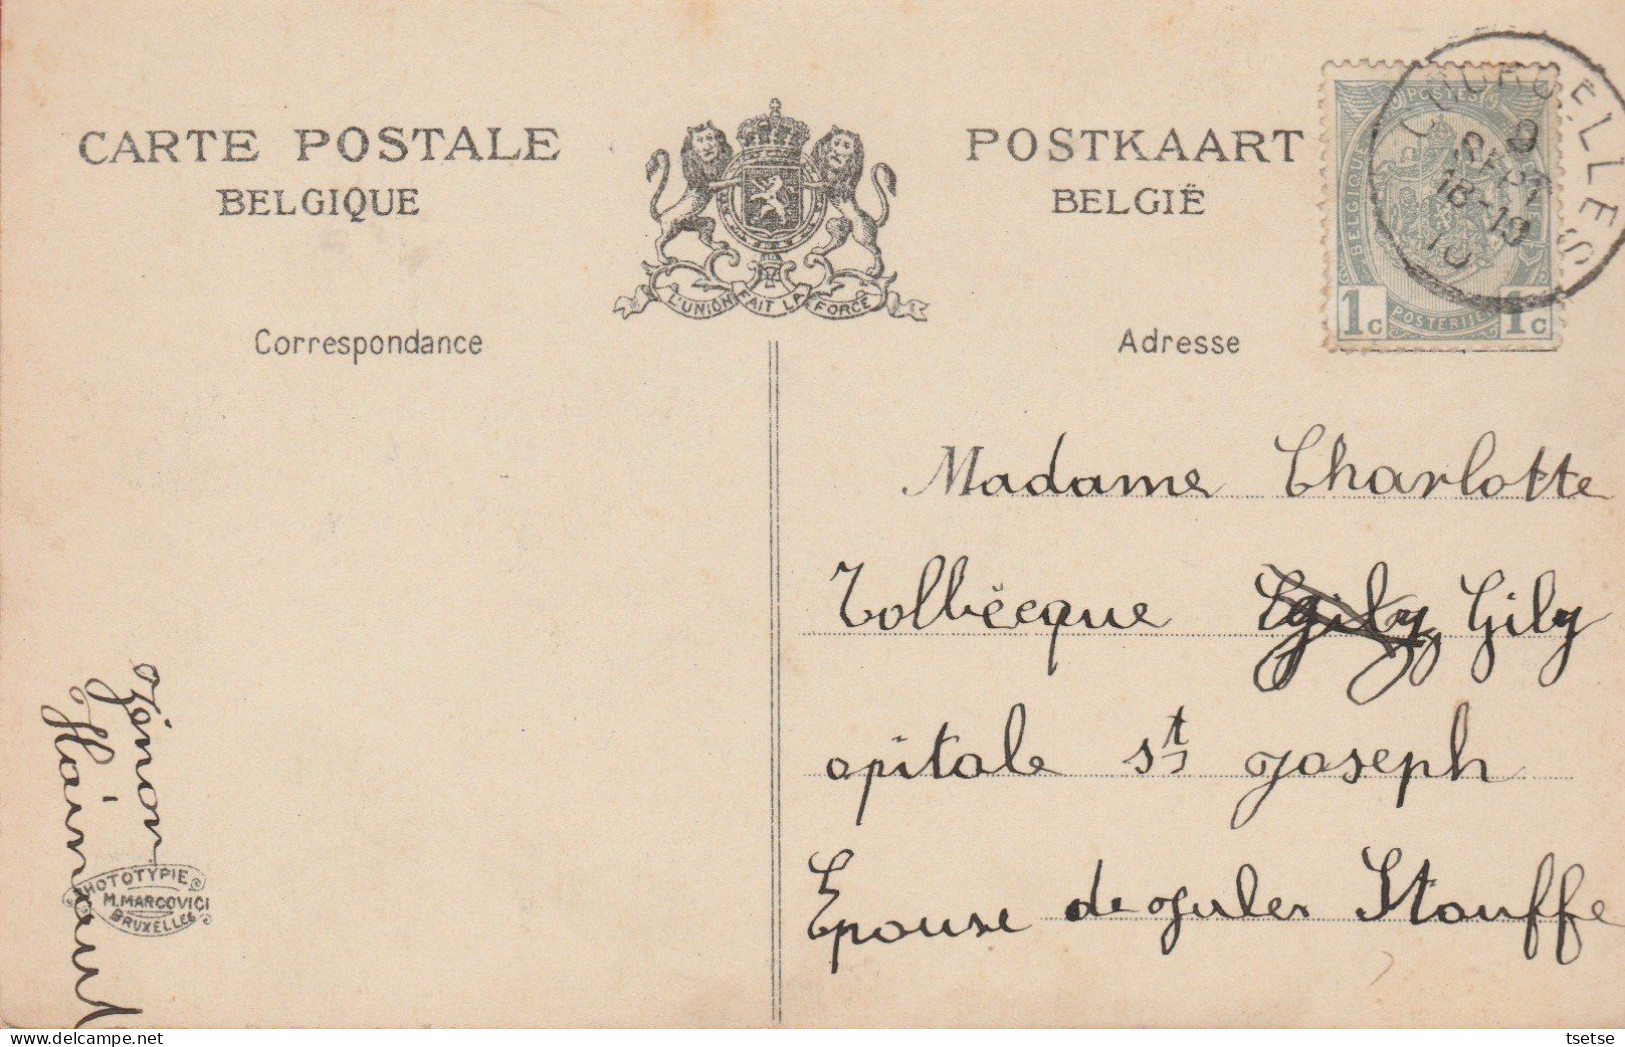 CARTE POSTALE
BELGIQUE
POSTKAART
BELGIË
L'UNION FAIT LA FORCE
Correspondance
Adresse
POSTES
BELGIQUE
1c
POSTERIJEN
1c
COURCELLES
9
SEPT
18-19
10
Madame Charlotte
Tolbëcque Gily
opitale st joseph
Epouse de jules Stouffe
Zénon
Hainaut
PHOTOTYPIE
M. MARCOVICI
BRUXELLES
tsetse